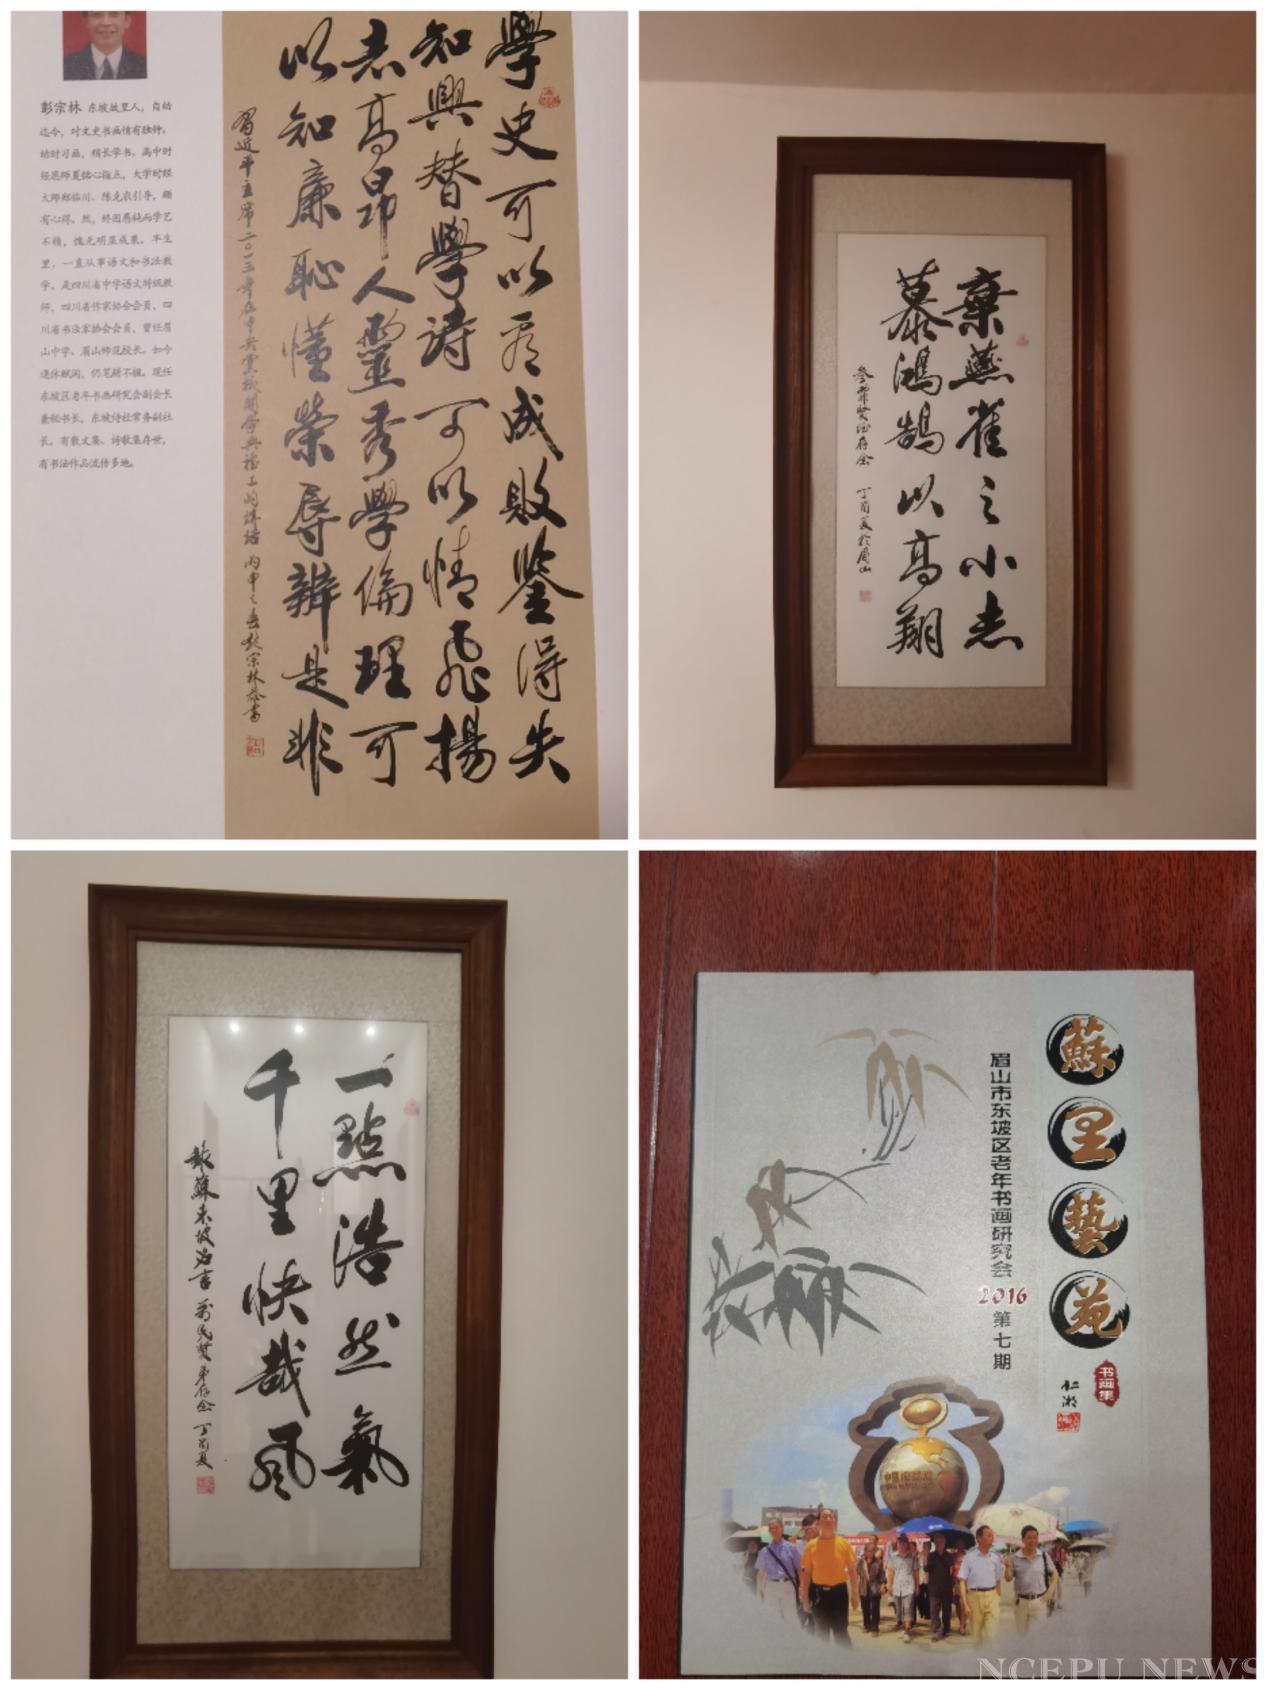 彭宗林 东坡故里人，自幼
迄今，对文史书画情有独钟，
幼时习画，稍长学书，高中时
经恩师夏铭心指点，大学时经
大师郑临川、陈克农引导，颇
有心得。然，终因愚钝而学艺
不精，愧无明显成果。半生
里，一直从事语文和书法教
学，是四川省中学语文特级教
师，四川省作家协会会员、四
川省书法家协会会员，曾任眉
山中学、眉山师范校长。如今
退休赋闲，仍笔耕不辍。现任
东坡区老年书画研究会副会长
兼秘书长、东坡诗社常务副社
长。有散文集、诗歌集存世，
有书法作品流传多地。
學史可以看成敗鑒得失
知興替學詩可以情飛揚
志高昂人靈秀學倫理可
以知廉恥懂榮辱辨是非
習近平主席二〇一三年在中共黨校開學典禮上的講話 丙申之春彭宗林恭書
棄燕雀之小志
慕鴻鵠以高翔
丁酉夏於眉山
一點浩然氣
千里快哉風
錄蘇東坡名言
丁酉夏
蘇里藝苑
书画集
仁湘
眉山市东坡区老年书画研究会
2016
第七期
NCEPU NEWS